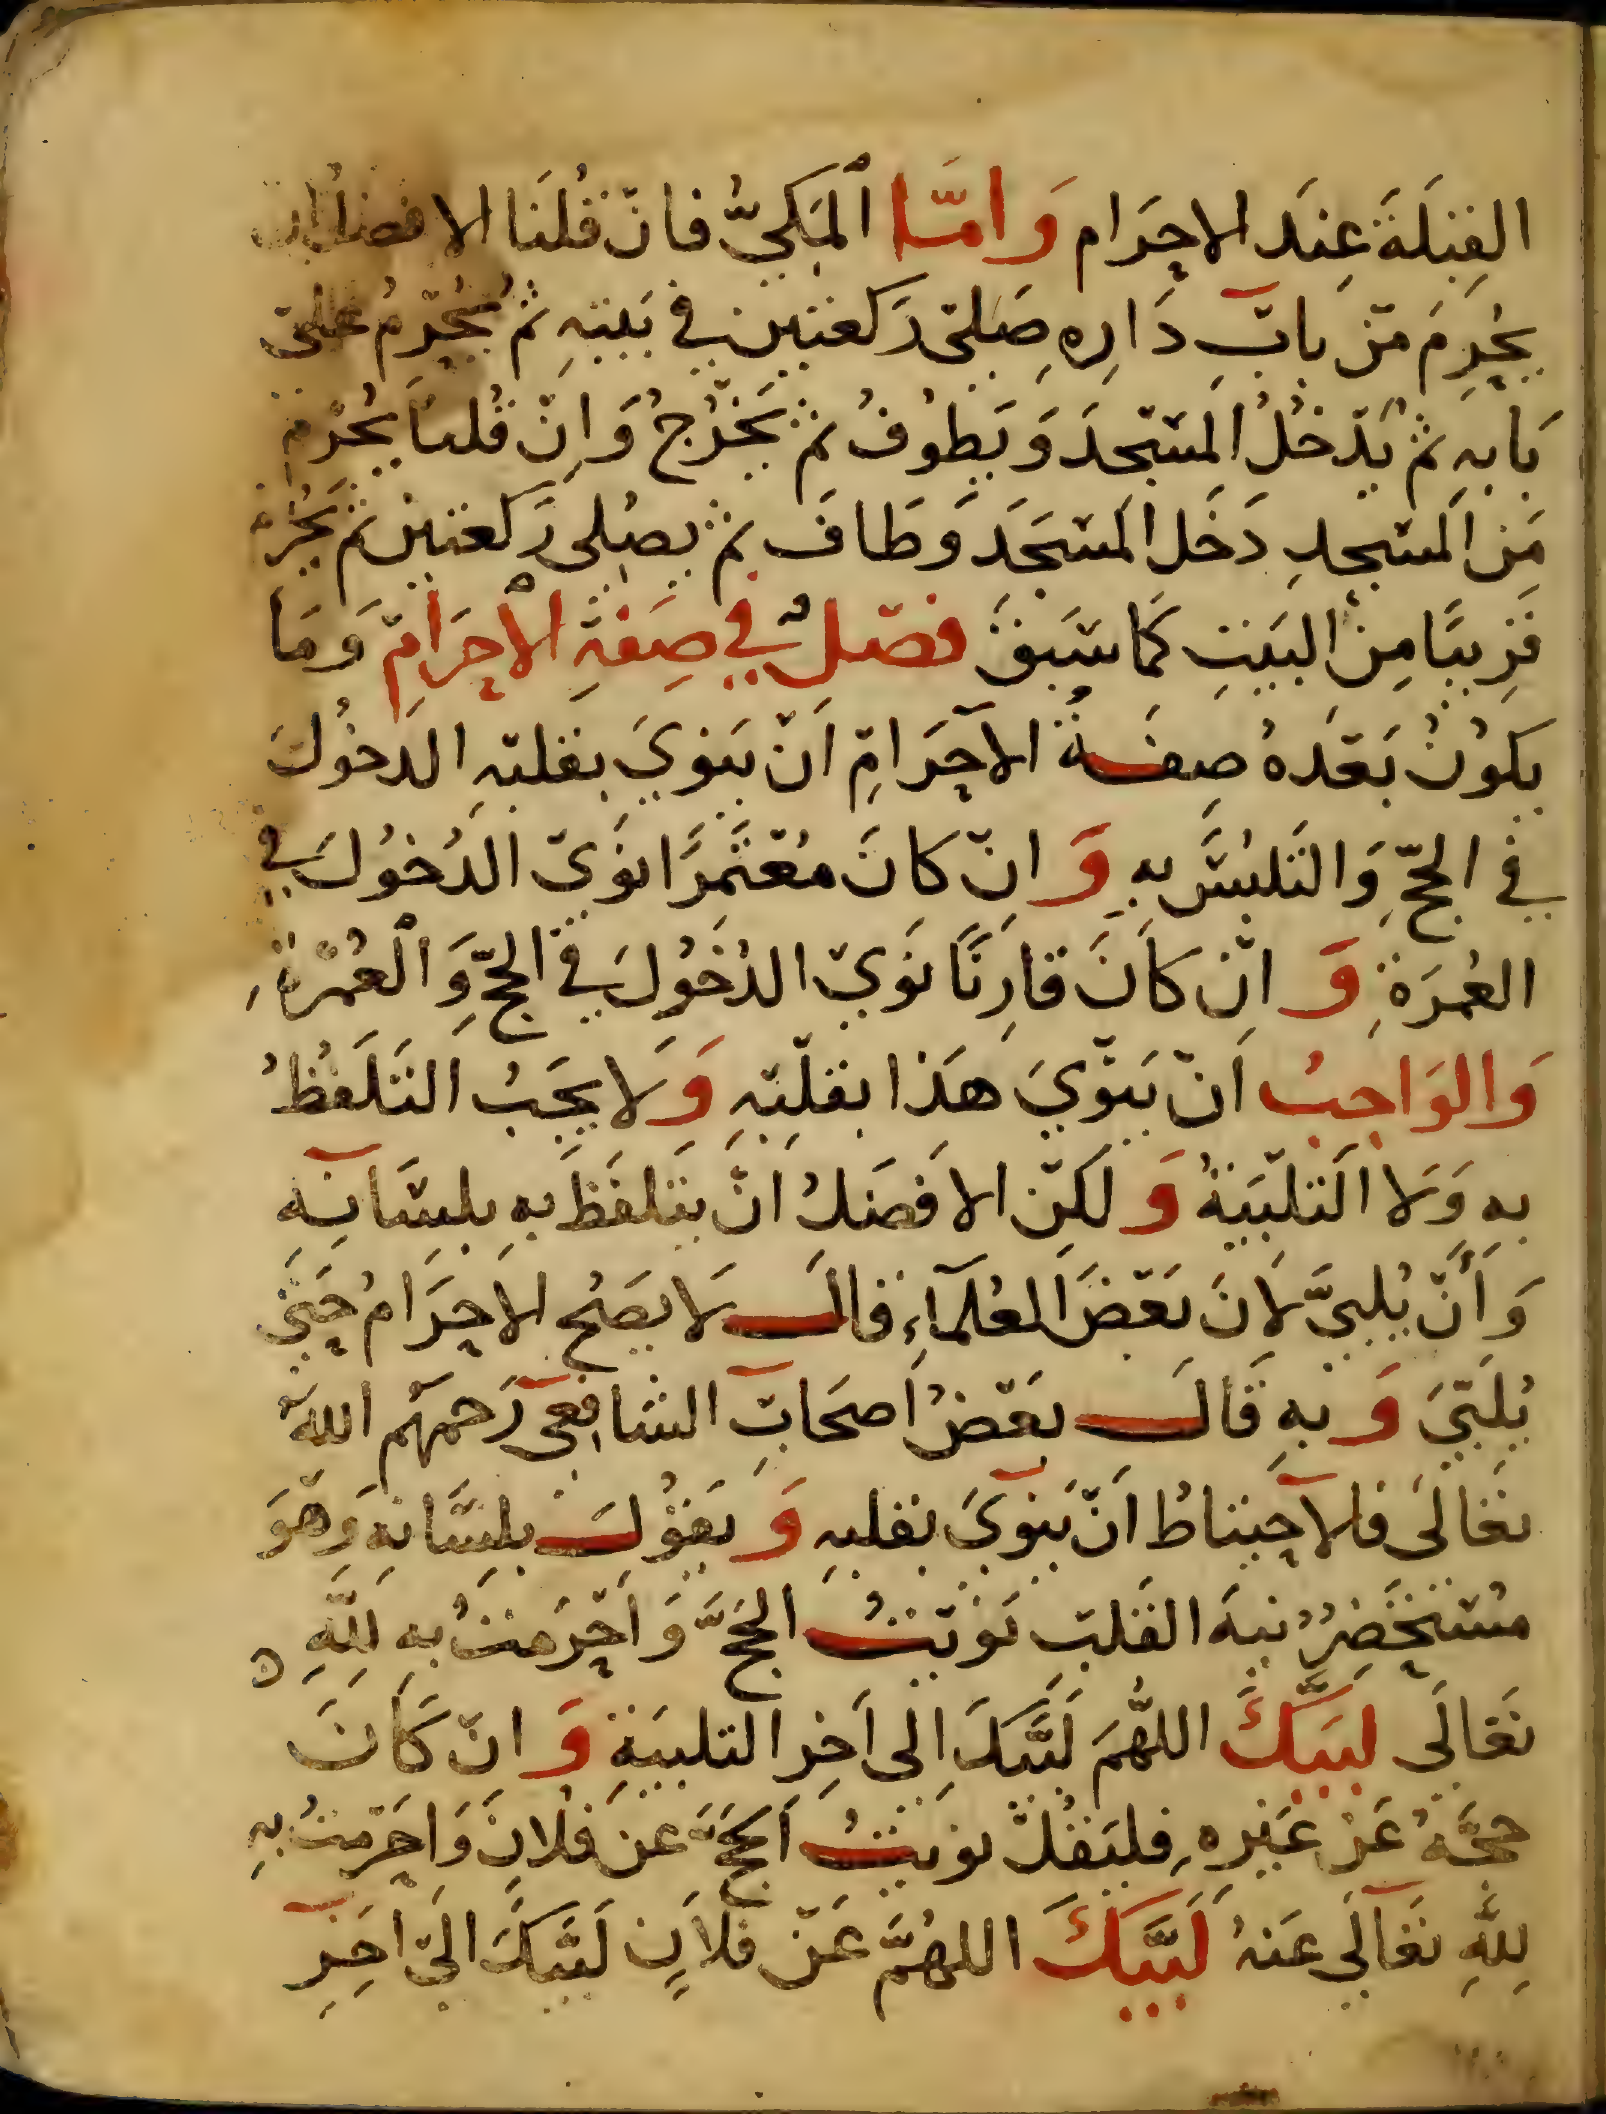 القِبْلَةَ عِندَ الاِحرَام وَامَّا المَكيُّ فانْ قُلنَا الافضلُ ان
يُحرِمَ مِن بابِ دَارِهِ صَلى رَكعتين في بَيتهِ ثم يُحْرِمُ على
بَابهِ ثم يَدْخُلُ المسْجدَ وَيَطوُفُ ثم يَخْرُجُ وَاِنْ قُلنا يُحْرم
مِن المسْجِدِ دَخَل المسْجَدَ وَطَافَ ثم يصُلى رَكعتين ثم يَحُرم
قَرِيبًا مِنَ البَيتِ كَما سَبَقَ فصْلٌ في صِفَةِ الأِحرَامِ وَمَا
يكوُنُ بَعْدَهُ صِفَةُ الاِحرَامِ انْ يَنوِيَ بقَلبهِ الدخُولَ
في الحَجِّ وَالتَلبُسَ بهِ وَانْ كَانَ مُعْتَمِرًا نَوَى الدُخوُلَ في
العُمرَةِ وَانْ كَانَ قَارِنًا نَوَى الدُخُولَ في الحَجِّ وَالْعُمْرَةِ
وَالوَاجِبُ اَنْ يَنْوِيَ هَذا بقَلْبهِ وَلا يَجَبُ التَلَفظُ
بهِ وَلا التَلْبَيَةُ وَلَكِنْ الافضَلُ انْ يتَلفَظَ بهِ بلسَانهِ
وَأَنْ يُلبيَّ لانَ بَعْضَ العُلَمَآءِ قال لا يَصَحُ الاِحرَامُ حَتى
يُلَبّيَ وَبهِ قَالَ بَعْضُ اَصحَابِ الشافِعى رَحمهُم اللهُ
تعَالىَ فالاحتِيَاطُ انْ يَنوِيَ بقلبهِ وَيَقوُلَ بلسَانهِ وَهوَ
مسْتَحْضِرٌ نيةَ القَلبِ نَوَيتُ الحَجَّ وَاَحْرَمتُ بهِ للهِ ٥
تعَالَى لبَيّكَ اللهُمَ لَبَّيكَ الى اَخِر التلبيَةِ وَانْ كَانَ
حَجَّهُ عَنْ غَيرِهِ فليَقُلْ نوَيتُ الحَجَّ عن فلانِ وَاَحْرَمتُ بهِ
لِلهِ تعَالَى عَنهُ لَبَيَّكَ اللهُمَّ عَنْ فُلاَنٍ لَبَّيكَ الىَ اخِرِ